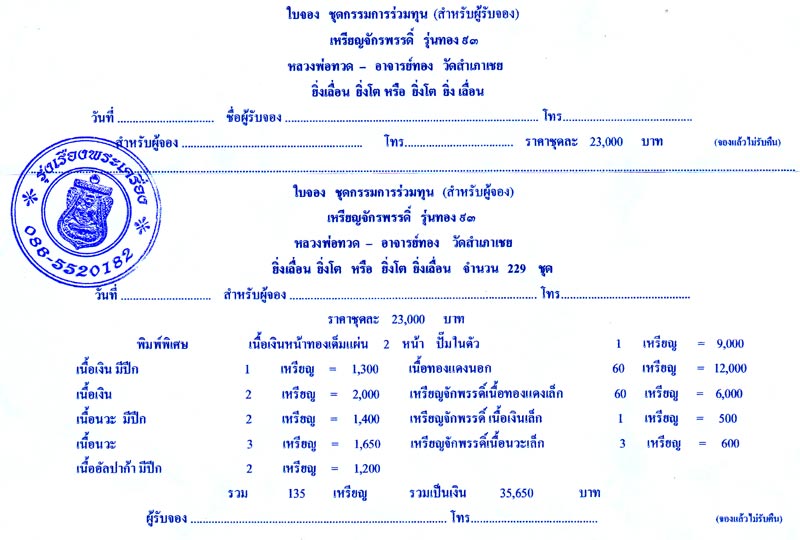 ใบจอง ชุดกรรมการร่วมทุน (สำหรับผู้รับจอง)
เหรียญจักรพรรดิ์ รุ่นทอง ๙๓
หลวงพ่อทวด – อาจารย์ทอง วัดสำเภาเชย
ยิ่งเลื่อน ยิ่งโต หรือ ยิ่งโต ยิ่ง เลื่อน
วันที่ .............................. ชื่อผู้รับจอง ................................................................ โทร ................................
สำหรับผู้จอง .................................................... โทร............................ ราคาชุดละ 23,000 บาท (จองแล้วไม่รับคืน)
รุ่งเรืองพระเครื่อง
088-5520182
ใบจอง ชุดกรรมการร่วมทุน (สำหรับผู้จอง)
เหรียญจักรพรรดิ์ รุ่นทอง ๙๓
หลวงพ่อทวด – อาจารย์ทอง วัดสำเภาเชย
ยิ่งเลื่อน ยิ่งโต หรือ ยิ่งโต ยิ่งเลื่อน จำนวน 229 ชุด
วันที่ .............................. สำหรับผู้จอง ................................................................ โทร................................
ราคาชุดละ 23,000 บาท
พิมพ์พิเศษ เนื้อเงินหน้าทองเต็มแผ่น 2 หน้า ปั๊มในตัว 1 เหรียญ = 9,000
เนื้อเงิน มีปีก 1 เหรียญ = 1,300 เนื้อทองแดงนอก 60 เหรียญ = 12,000
เนื้อเงิน 2 เหรียญ = 2,000 เหรียญจักรพรรดิ์เนื้อทองแดงเล็ก 60 เหรียญ = 6,000
เนื้อนวะ มีปีก 2 เหรียญ = 1,400 เหรียญจักรพรรดิ์ เนื้อเงินเล็ก 1 เหรียญ = 500
เนื้อนวะ 3 เหรียญ = 1,650 เหรียญจักรพรรดิ์เนื้อนวะเล็ก 3 เหรียญ = 600
เนื้ออัลปาก้า มีปีก 2 เหรียญ = 1,200
รวม 135 เหรียญ รวมเป็นเงิน 35,650 บาท
ผู้รับจอง ................................................................ โทร ................................ (จองแล้วไม่รับคืน)